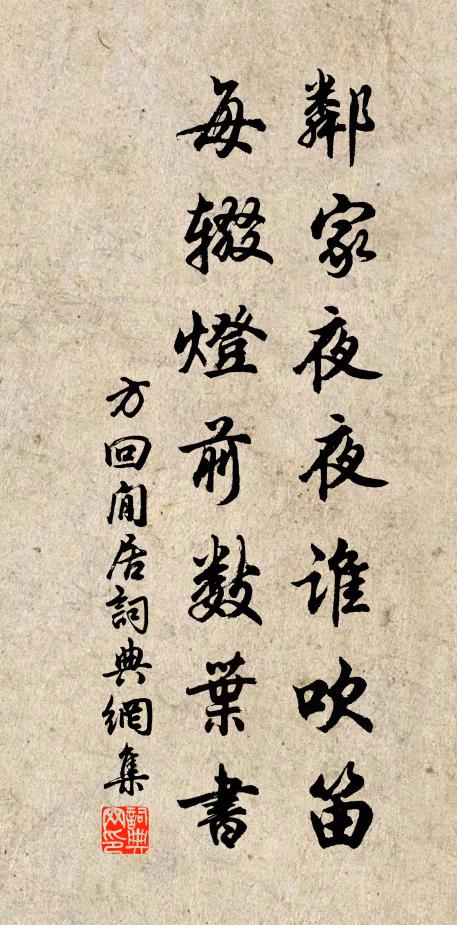 鄰家夜夜誰吹笛
每輟燈前數葉書
方回閒居詞典網集
詞典网印